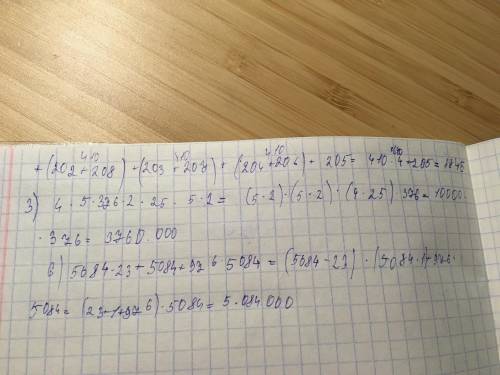 410 410 410 1640
+(202+208)+(203+207)+(204+206)+205=410·4+205=1845
3) 4·5·376·2·25·5·2=(5·2)·(5·2)·(4·25)·376=10000·
·376=3760.000
6) 5084·23+5084+976·5084=(5084·23)·(5084·1)+976·
5084=(23+1+976)·5084=5.084.000